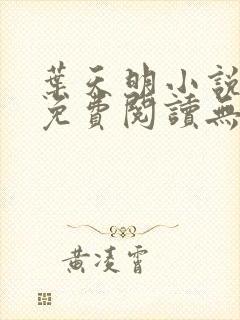 葉天明小說
免費閱讀無
黃凌霄